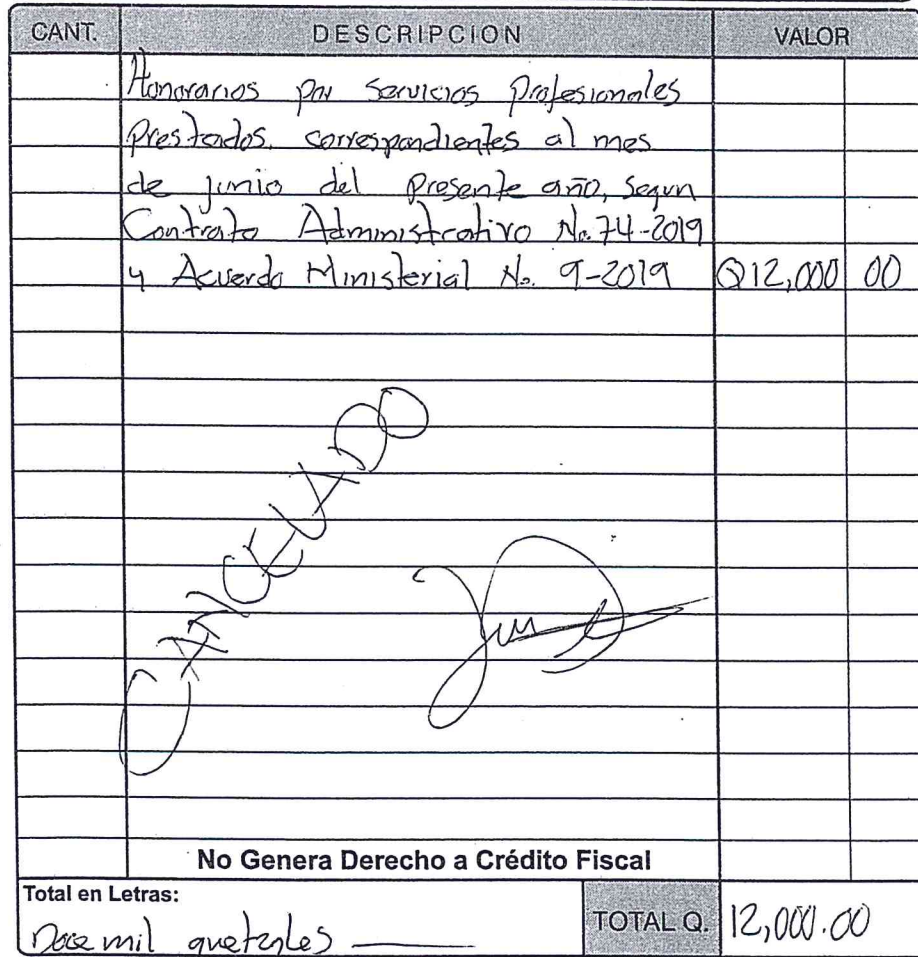 CANT. DESCRIPCION VALOR
Honorarios por Servicios Profesionales
Prestados. correspondientes al mes
de junio del presente año, Segun
Contrato Administrativo No. 74-2019
y Acuerdo Ministerial No. 9-2019 Q12,000 00
CANCELADO
No Genera Derecho a Crédito Fiscal
Total en Letras:
Doce mil quetzales
TOTAL Q. 12,000.00